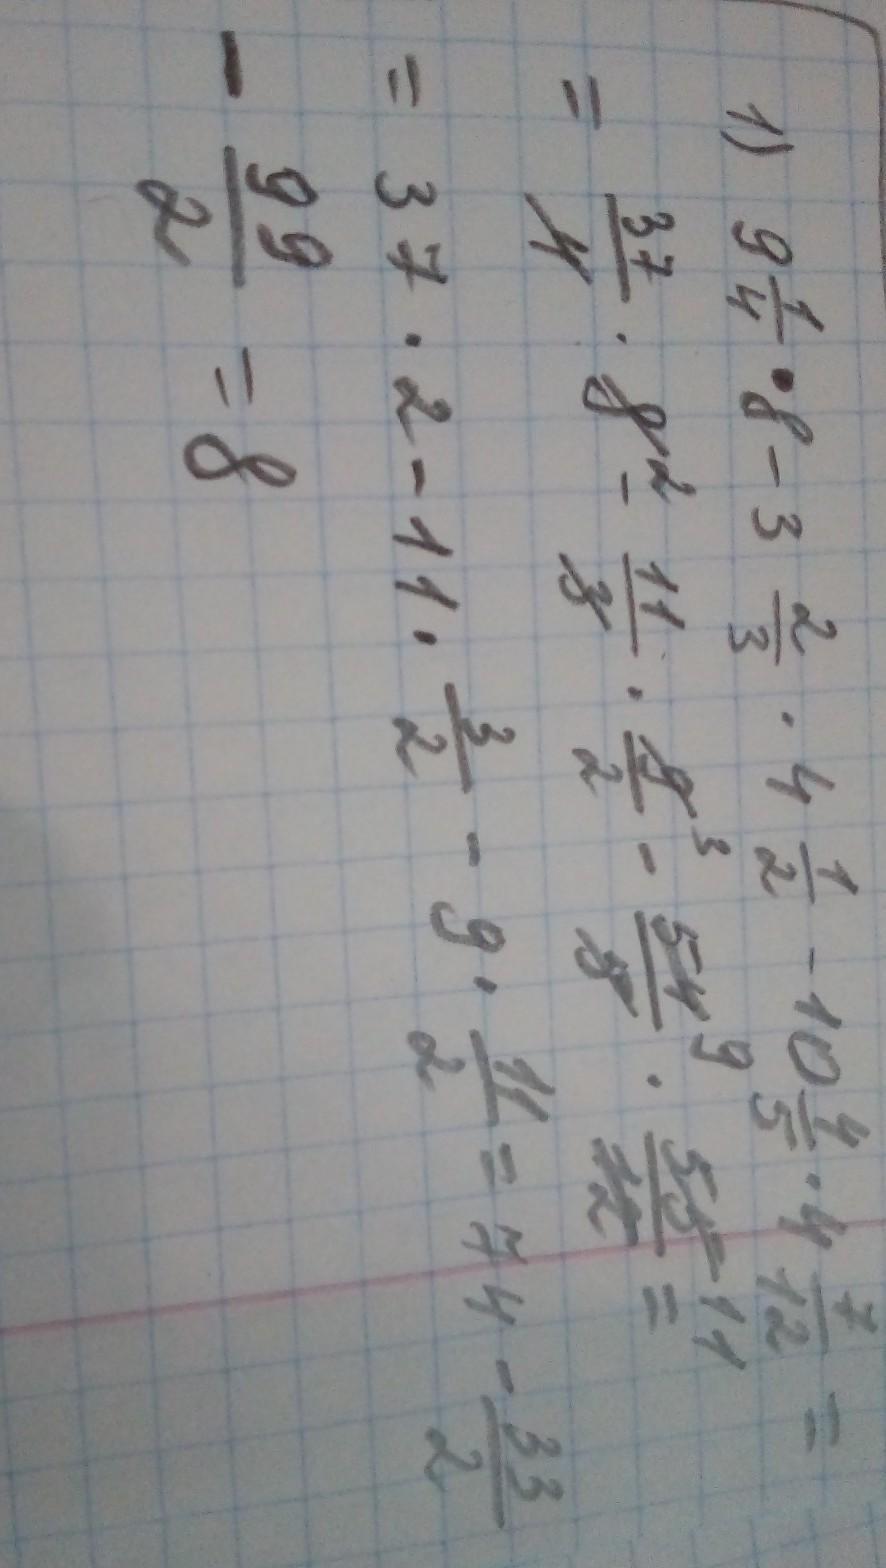 1) 9 1/4 • 8 - 3 2/3 · 4 1/2 - 10 4/5 · 4 7/12 =
= 37/4 · 8 2 - 11/3 · 9/2 3 - 54/5 9 · 55/12 11 =
= 37 · 2 - 11 · 3/2 - 9 · 11/2 = 74 - 33/2
- 99/2 = 8